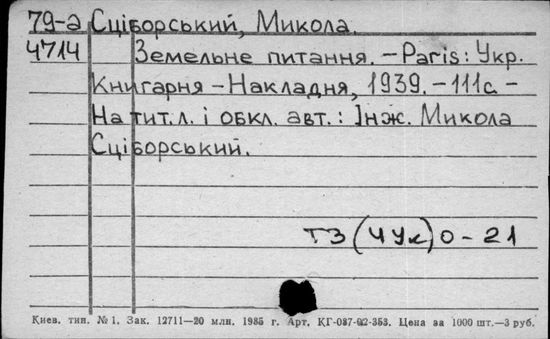 79-а Сціборський, Микола.
4714 Земельне питання. – Paris: Укр.
Книгарня – Накладня, 1939. – 111с. –
На тит. л. і обкл. авт.: Інж. Микола
Сціборський.
ТЗ(4Ук)0-21
Киев. тип. № 1. Зак. 12711—20 млн. 1985 г. Арт. КГ-087-02-353. Цена за 1000 шт.—3 руб.